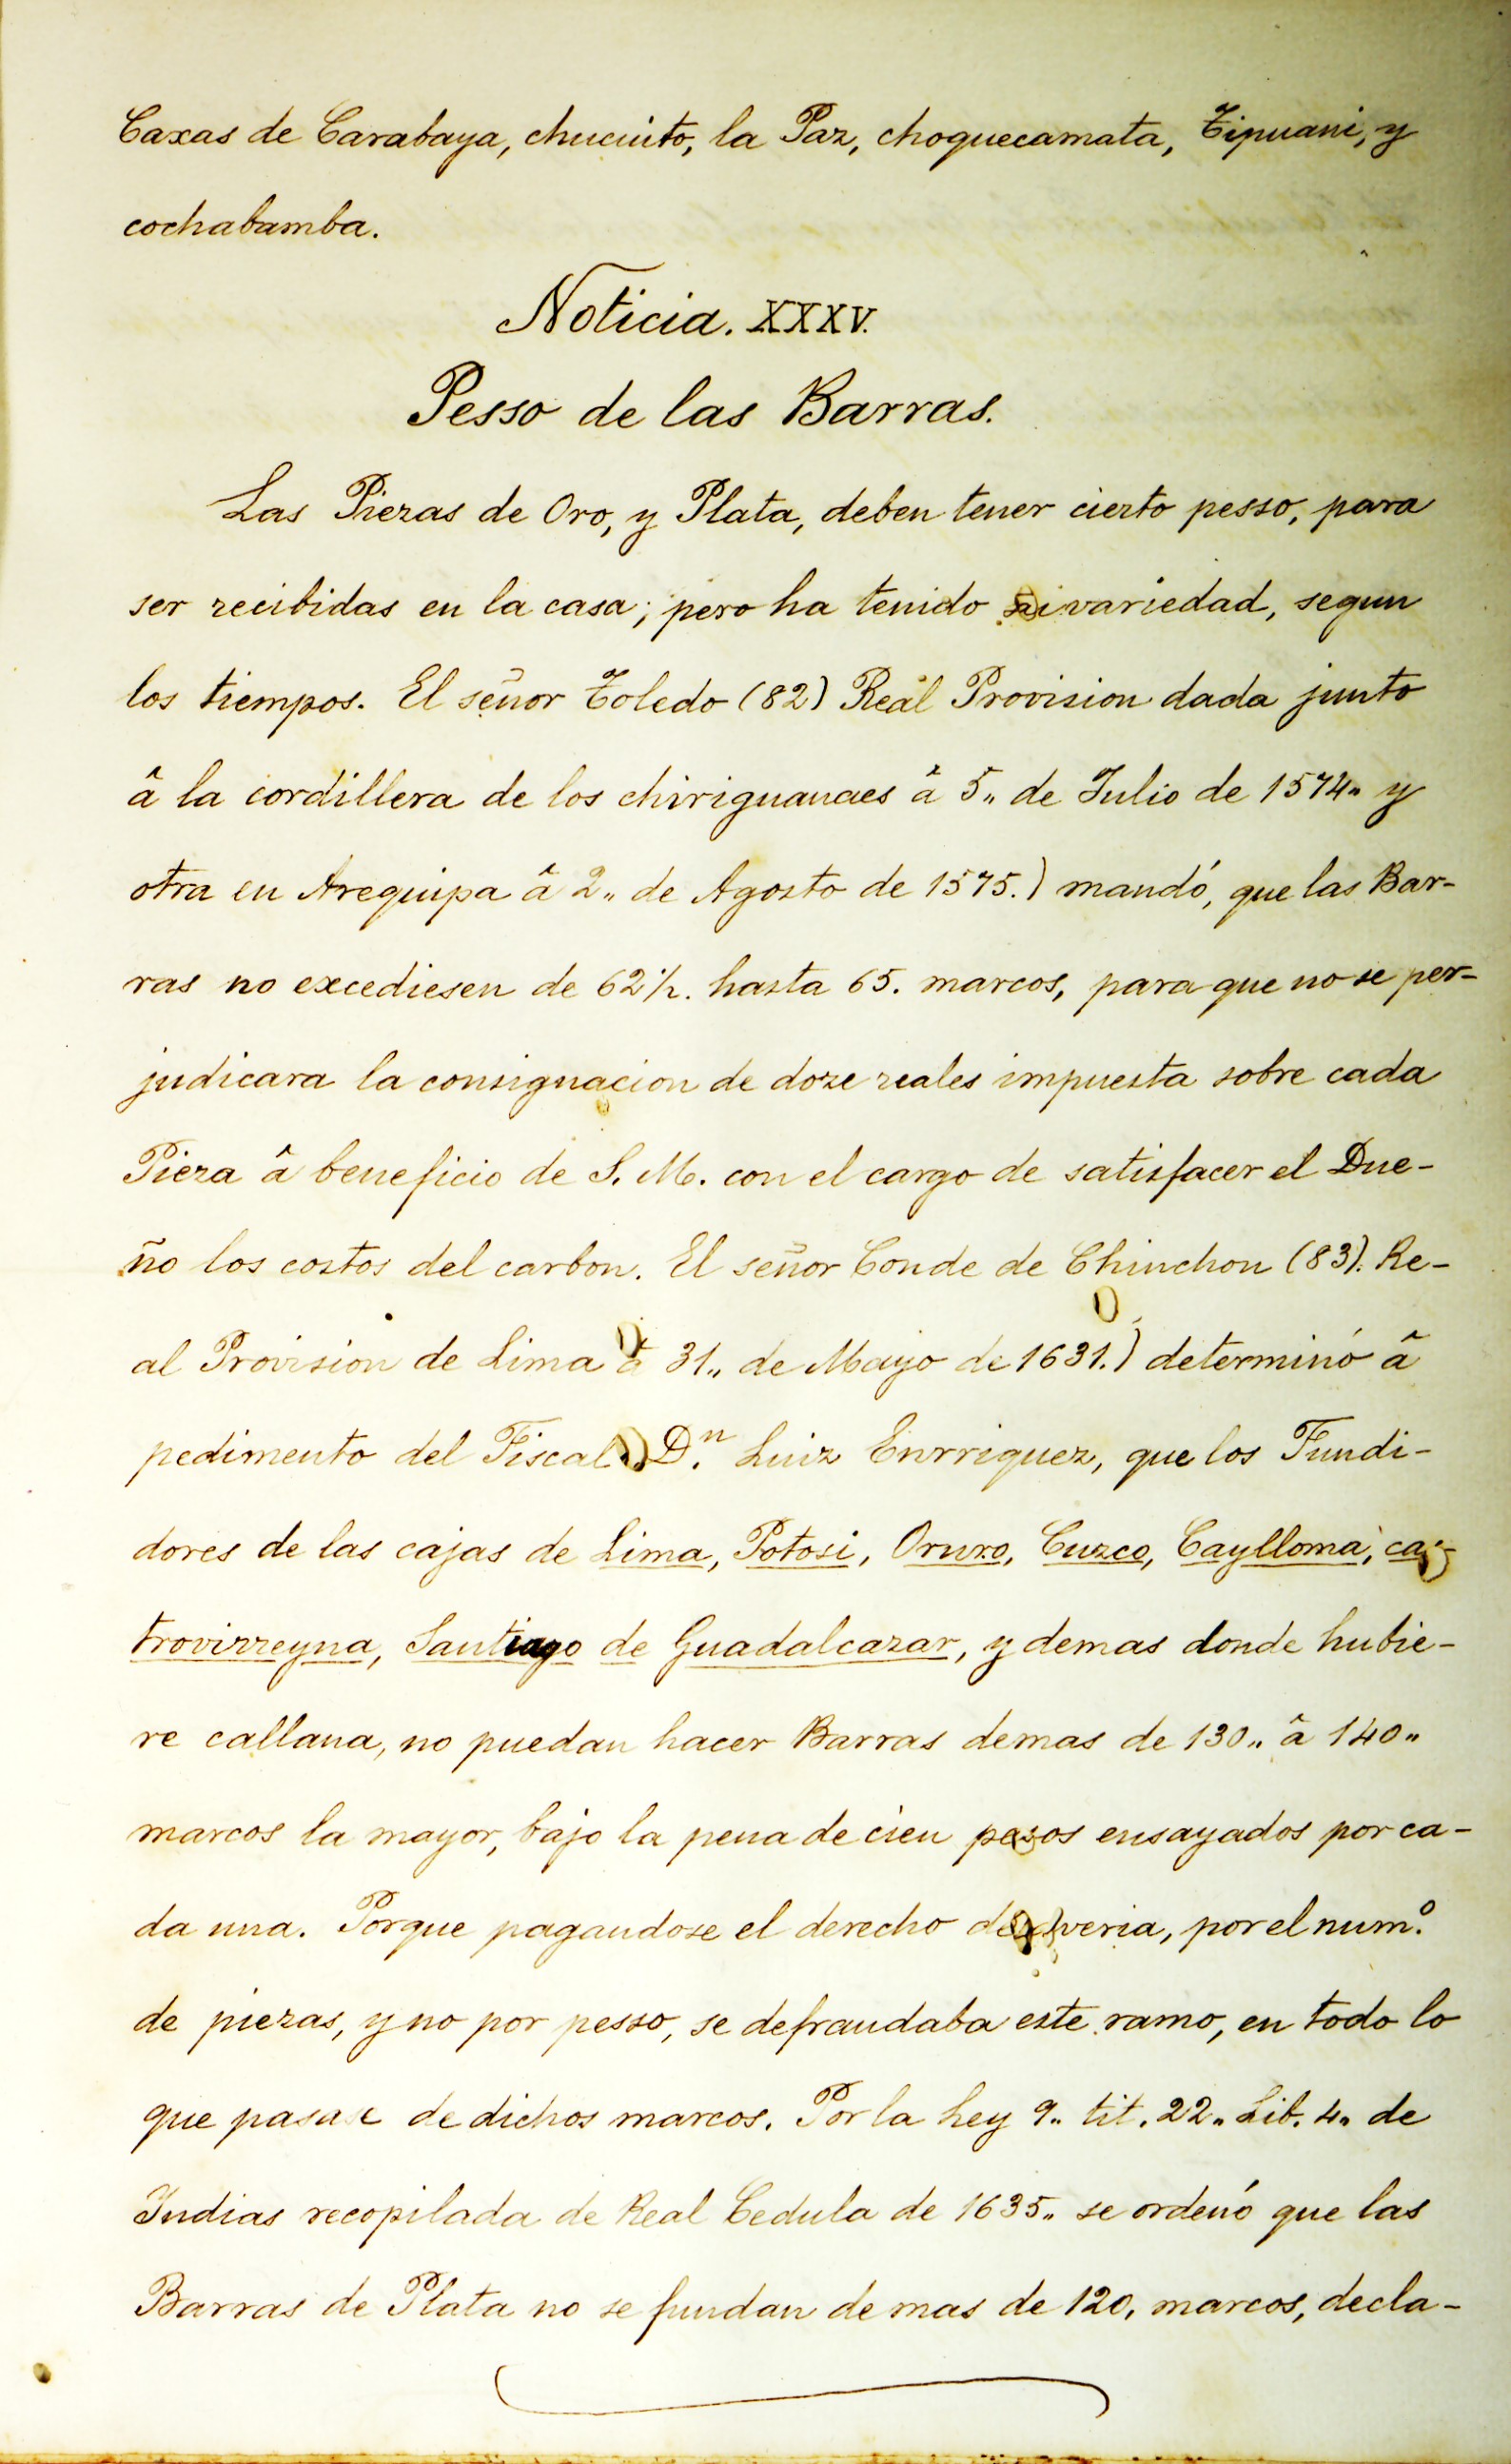 Caxas de Carabaya, chucuito, la Paz, choquecamata, Tipuani, y
cochabamba.
Noticia. XXXV.
Pesso de las Barras.
Las Piezas de Oro, y Plata, deben tener cierto pesso, para
ser recibidas en la casa; pero ha tenido variedad, segun
los tiempos. El señor Toledo (82) Real Provision dada junto
â la cordillera de los chiriguanaes â 5,, de Julio de 1574,, y
otra en Arequipa â 2,, de Agosto de 1575.) mandó, que las Bar-
ras no excediesen de 62 1/2. hasta 65. marcos, para que no se per-
judicara la consignacion de doze reales impuesta sobre cada
Pieza â beneficio de S. M. con el cargo de satisfacer el Due-
ño los costos del carbon. El señor Conde de Chinchon (83). Re-
al Provision de Lima â 31,, de Mayo de 1631.) determinó â
pedimento del Fiscal D.n Luiz Enrriquez, que los Fundi-
dores de las cajas de Lima, Potosi, Oruro, Cuzco, Caylloma, ca-
trovirreyna, Santiago de Guadalcazar, y demas donde hubie-
re callana, no puedan hacer Barras demas de 130,, â 140,,
marcos la mayor, bajo la pena de cien pesos ensayados por ca-
da una. Porque pagandose el derecho de averia, por el num.o
de piezas, y no por pesso, se defraudaba este ramo, en todo lo
que pasase de dichos marcos. Por la Ley 9,, tit. 22,, Lib. 4,, de
Indias recopilada de Real Cedula de 1635,, se ordenó que las
Barras de Plata no se fundan de mas de 120, marcos, decla-